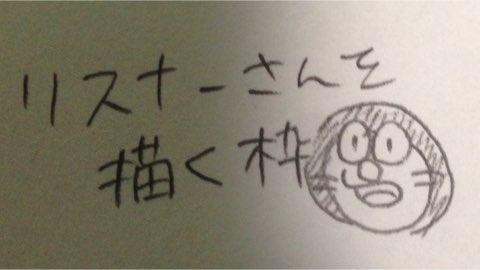 リスナーさんを
描く枠